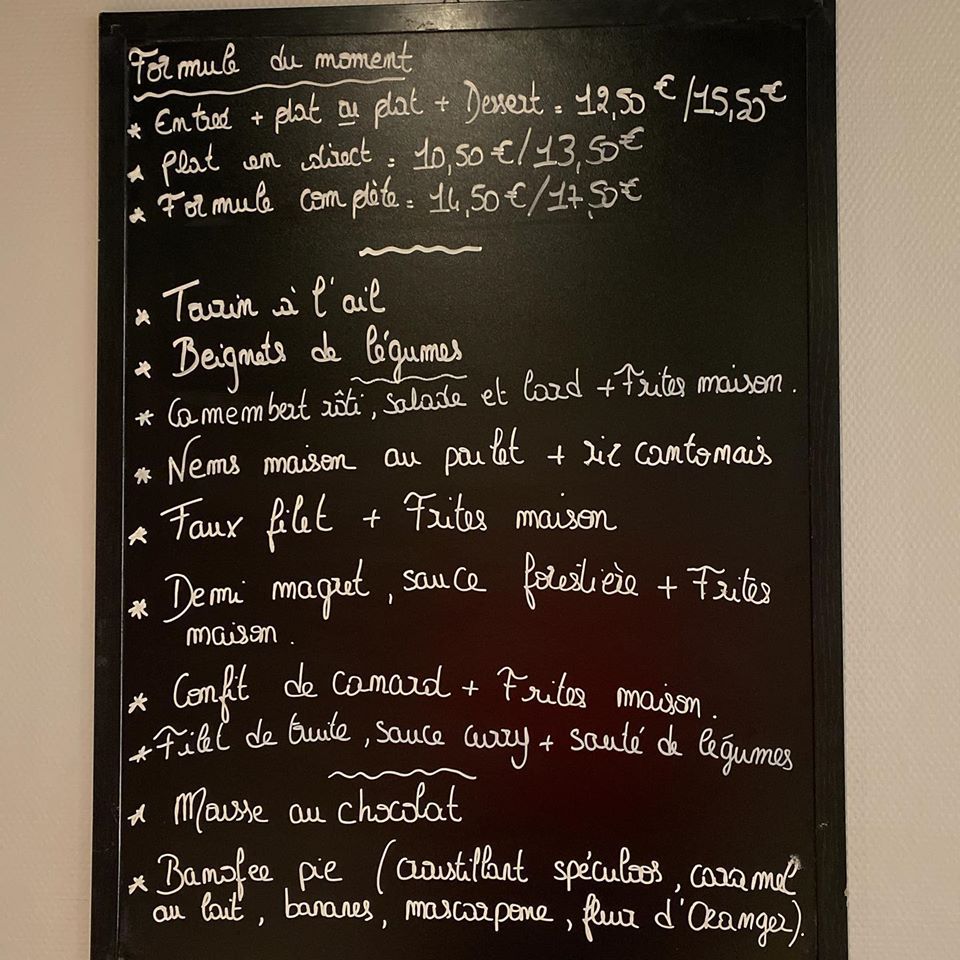 Formule du moment
* Entrée + plat ou plat + Dessert = 12,50 €/15,50€
* Plat en direct = 10,50 €/13,50€
* Formule complète = 14,50 €/17,50€
* Tourin à l'ail
* Beignets de légumes
* Camembert rôti, salade et lard + Frites maison.
* Nems maison au poulet + riz cantonais
* Faux filet + Frites maison
* Demi magret, sauce forestière + Frites
maison.
* Confit de canard + Frites maison.
* Filet de truite, sauce curry + sauté de légumes
* Mousse au chocolat
* Banofee pie (croustillant spéculoos, caramel
au lait, bananes, mascarpone, fleur d'Oranger).